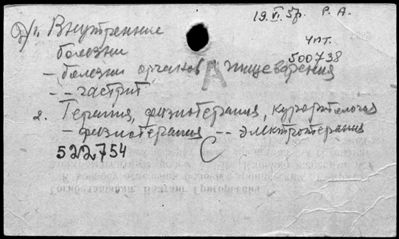 19.VI.57. Р. А.
Д/п Внутренние
болезни
чит.
500738
- болезни органов пищеварения
А
-- гастрит
2. Терапия, физиотерапия, курортология
- физиотерапия -- электротерапия
522754
С